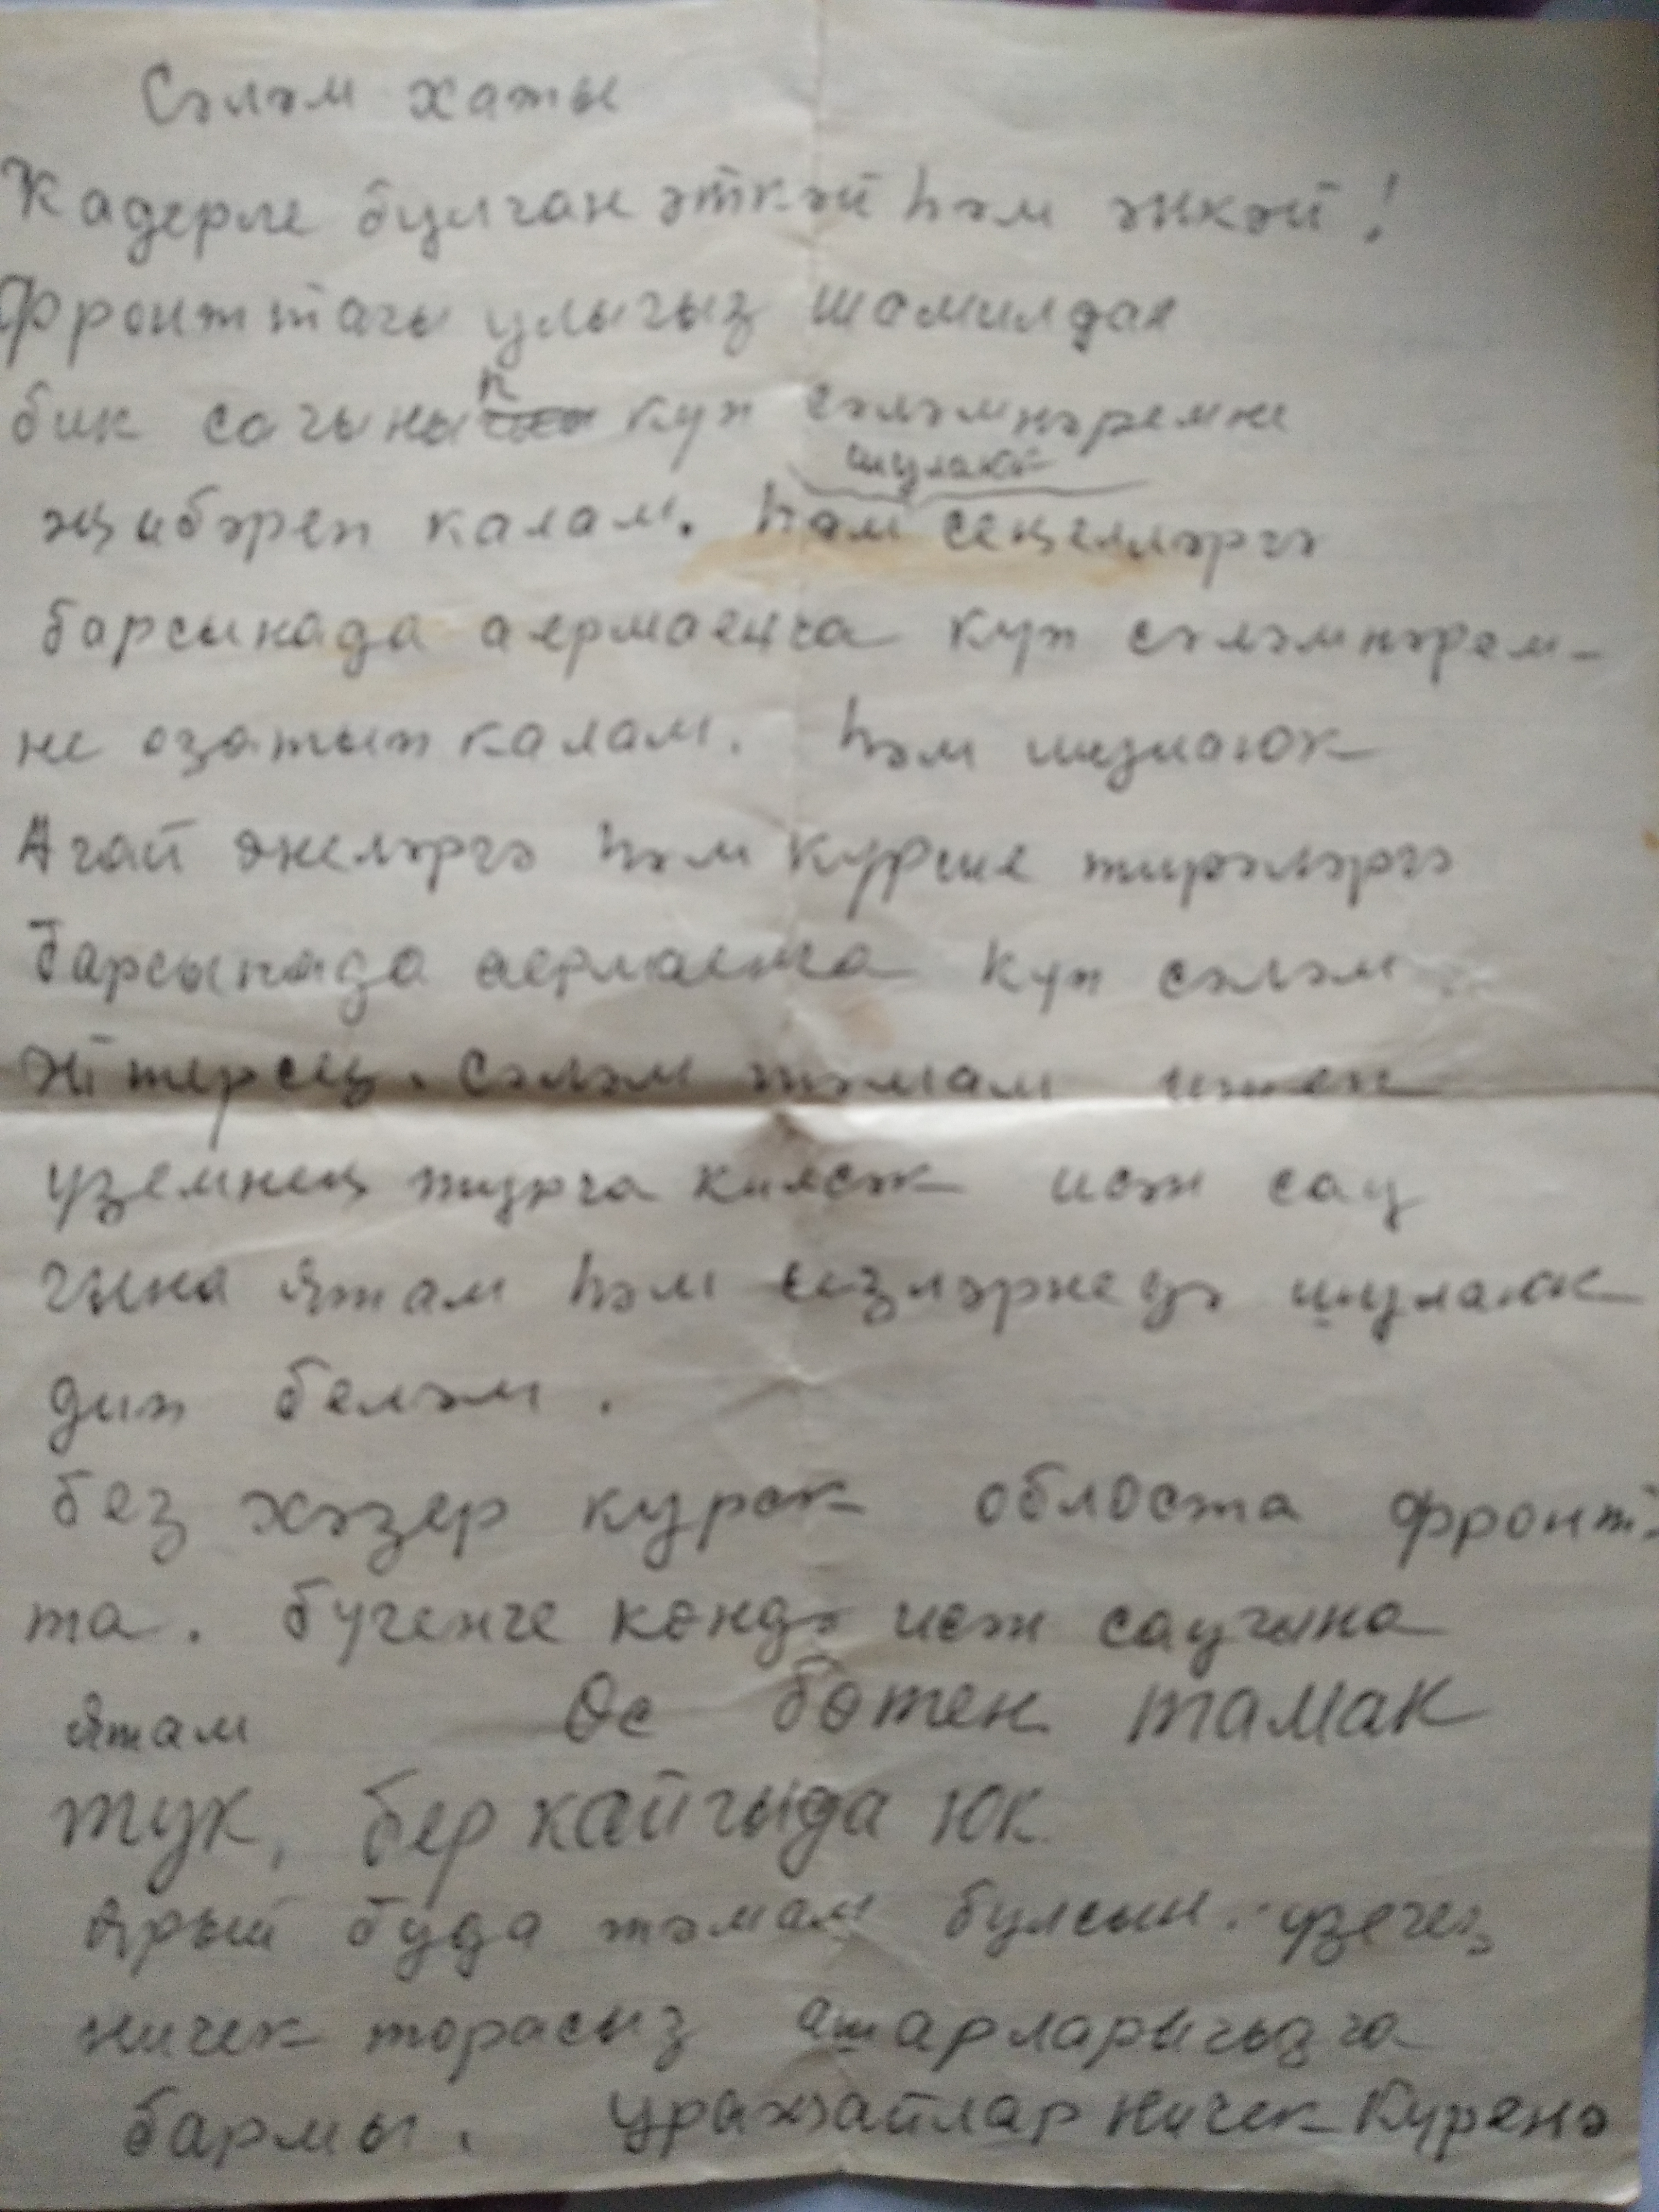 Сәләм хаты
Кадерле булган әткәй һәм әнкәй!
Фронттагы улыгыз шамилдан
бик сагынып күп сәләмнәремне
җибәреп калам. шулай һәм сеңелләргә
барсынада аермаенча күп сәләмнәрем-
не озатып калам. һәм шулаюк
Агай энеләргә һәм күрше тирәләргә
барсынада аермаенча күп сәләм
әйтерсең. Сәләм тәмам итеп
үземнең турга килсәк исән сау
гына ятам һәм сезләрнедә шулаюк
дип беләм.
без хәзер курск областа фронт-
та. бүгенге көндә исән саугына
ятам Өс бөтен тамак
тук, бер кайгыда юк
Ярый буда тәмам булсын. үзегез
ничек торасыз ашарларыгызга
бармы. уражайлар ничек Күренә